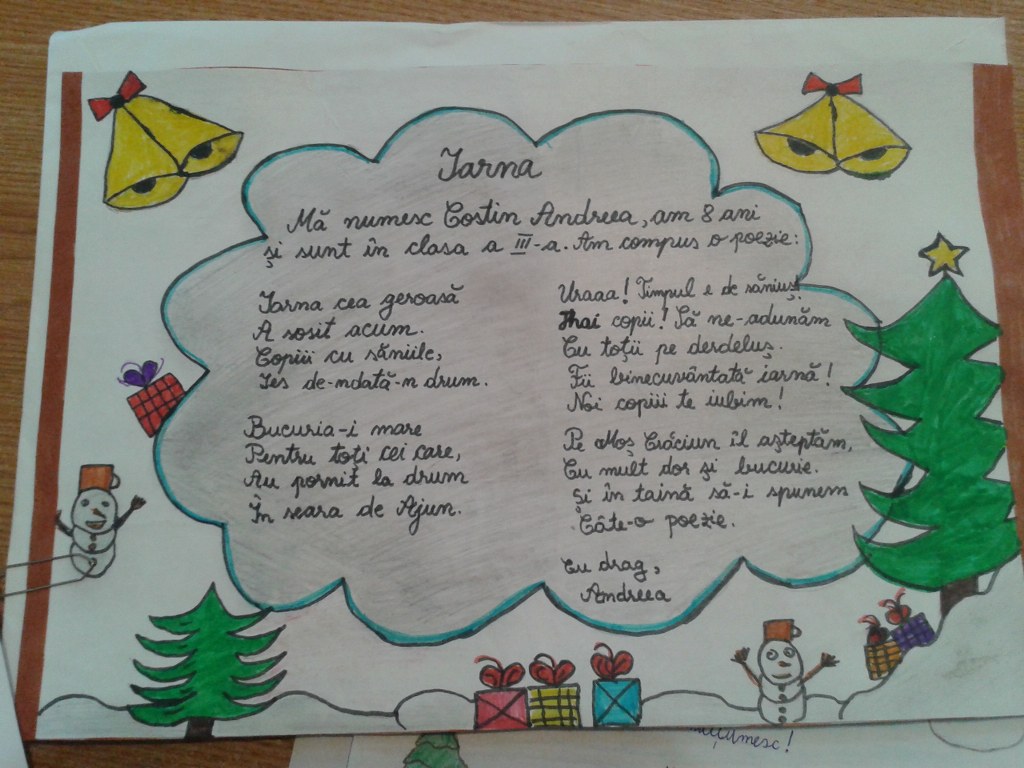 Iarna
Mă numesc Costin Andreea, am 8 ani
și sunt în clasa a III-a. Am compus o poezie:
Iarna cea geroasă
A sosit acum.
Copiii cu săniile,
Ies de-ndată-n drum.
Bucuria-i mare
Pentru toți cei care,
Au pornit la drum
În seara de Ajun.
Uraaa! Timpul e de săniuș!
Hai copii! Să ne-adunăm
Cu toții pe derdeluș.
Fii binecuvântată iarnă!
Noi copiii te iubim!
Pe Moș Crăciun îl așteptăm,
Cu mult dor și bucurie.
Și în taină să-i spunem
Câte-o poezie.
Cu drag,
Andreea